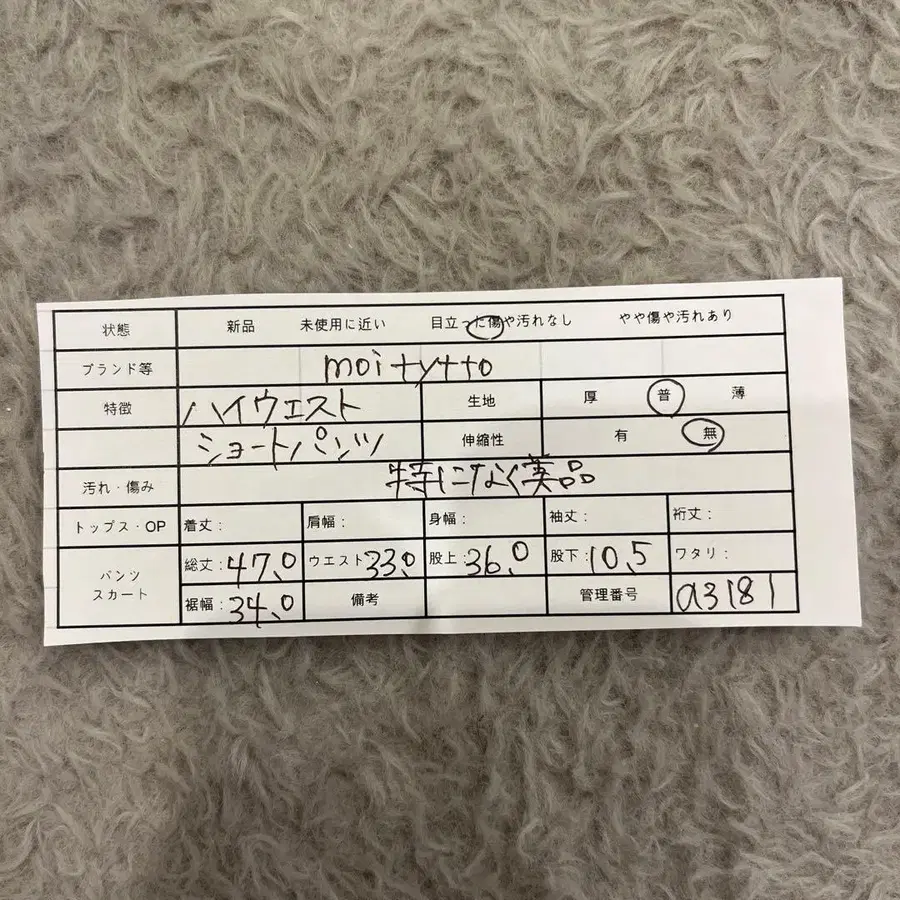 状態 新品 未使用に近い 目立った傷や汚れなし やや傷や汚れあり
ブランド等 moitytto
特徴 ハイウエスト 生地 厚 普 薄
ショートパンツ 伸縮性 有 無
汚れ・傷み 特になく美品
トップス・OP 着丈: 肩幅: 身幅: 袖丈: 裄丈:
パンツ スカート 総丈:47.0 ウエスト33.0 股上:36.0 股下:10.5 ワタリ:
裾幅:34.0 備考 管理番号 a3181